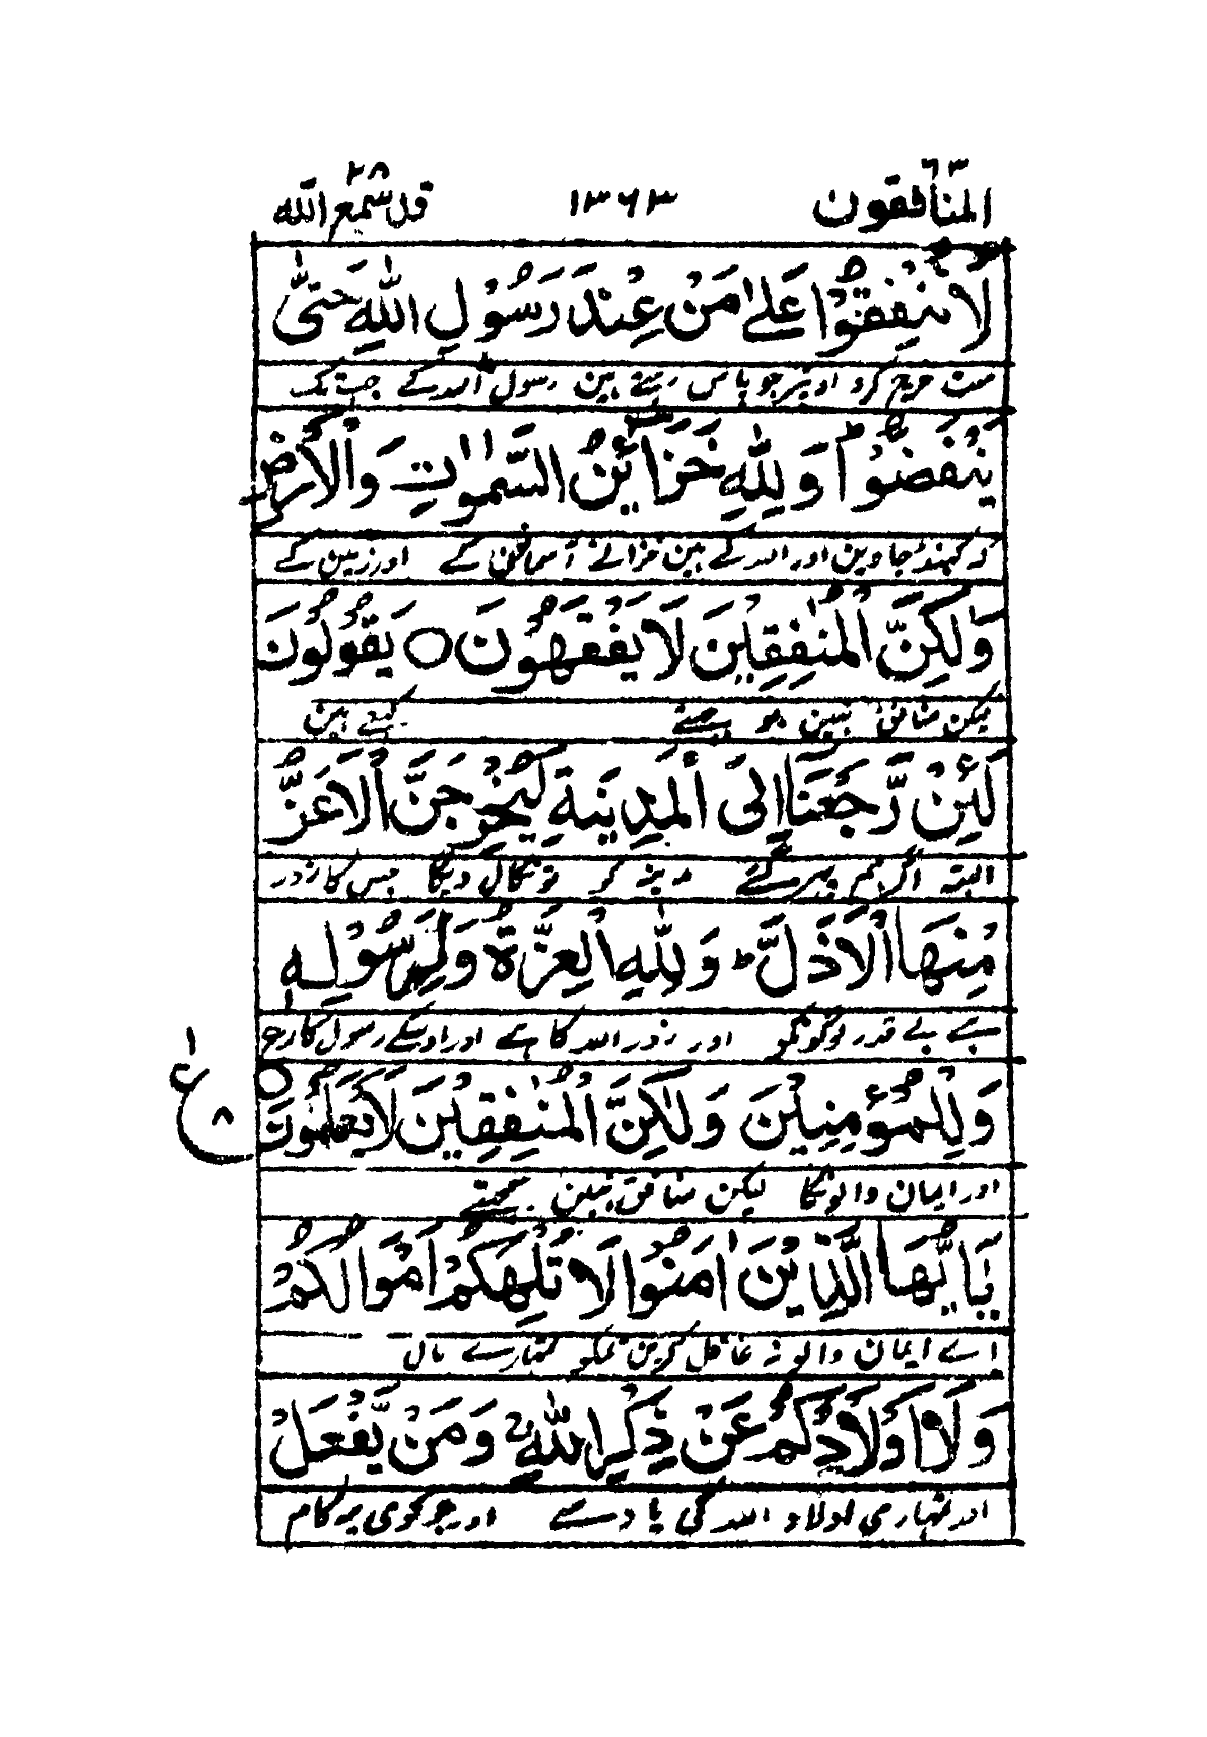 المنافقون ٦٣ ١٣٦٣ قد سمع الله ٢٨
لَا تُنْفِقُوْا عَلٰى مَنْ عِنْدَ رَسُوْلِ اللّٰهِ حَتّٰى
مت خرچ کرو اوپر جو پاس رہتے ہین رسول اللہ کے جب تک
يَنْفَضُّوْا ؕ وَلِلّٰهِ خَزَآئِنُ السَّمٰوٰتِ وَالْاَرْضِ
کہ کھنڈ جاوین اور اللہ کے ہین خزانے آسمانون کے اور زمین کے
وَلٰكِنَّ الْمُنٰفِقِيْنَ لَا يَفْقَهُوْنَ ○ يَقُوْلُوْنَ
لیکن منافق نہین بوجھتے کہتے ہین
لَئِنْ رَّجَعْنَا اِلَى الْمَدِيْنَةِ لَيُخْرِجَنَّ الْاَعَزُّ
البتہ اگر ہم پھر گئے مدینہ کو تو نکال دیگا جس کا زور
مِنْهَا الْاَذَلَّ ؕ وَلِلّٰهِ الْعِزَّةُ وَلِرَسُوْلِهٖ
ہے بے قدر لوگونکو اور زور اللہ کا ہے اور اوسکے رسول کا
وَلِلْمُؤْمِنِيْنَ وَلٰكِنَّ الْمُنٰفِقِيْنَ لَا يَعْلَمُوْنَ ○
ع ٨
اور ایمان والونکا لیکن منافق نہین سمجھتے
يٰۤاَيُّهَا الَّذِيْنَ اٰمَنُوْا لَا تُلْهِكُمْ اَمْوَالُكُمْ
اے ایمان والو نہ غافل کرین تمکو تمہارے مال
وَلَاۤ اَوْلَادُكُمْ عَنْ ذِكْرِ اللّٰهِ ۚ وَمَنْ يَّفْعَلْ
اور تمہاری اولاد اللہ کی یاد سے اور جو کوئی یہ کام